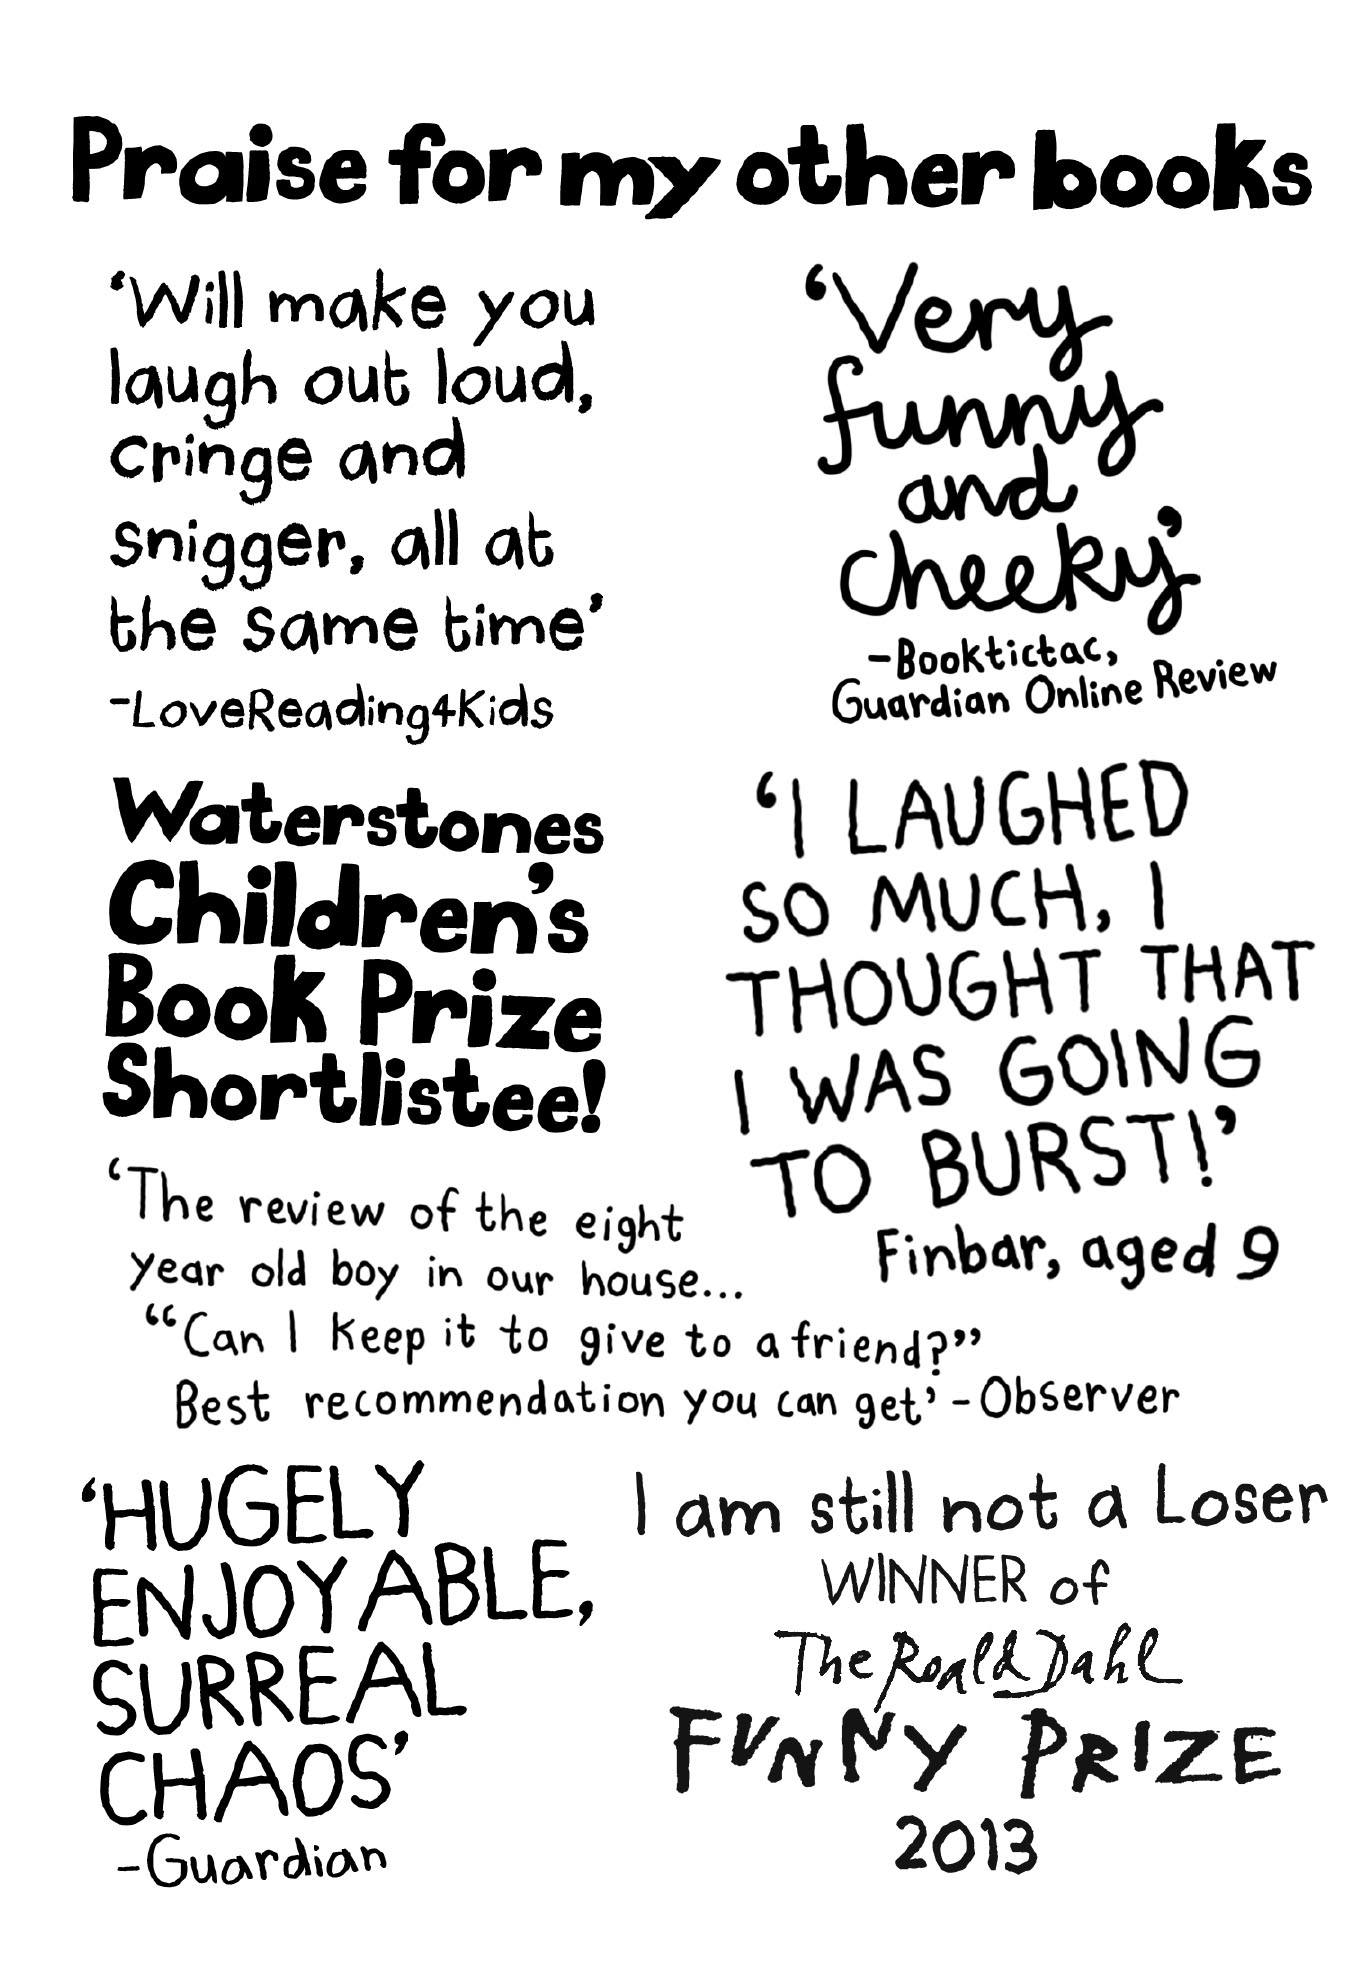 Praise for my other books
‘Will make you
laugh out loud,
cringe and
snigger, all at
the same time’
-LoveReading4Kids
‘Very
funny
and
cheeky’
-Booktictac,
Guardian Online Review
Waterstones
Children’s
Book Prize
Shortlistee!
‘I LAUGHED
SO MUCH, I
THOUGHT THAT
I WAS GOING
TO BURST!’
Finbar, aged 9
‘The review of the eight
year old boy in our house...
“Can I keep it to give to a friend?”
Best recommendation you can get’ - Observer
‘HUGELY
ENJOYABLE,
SURREAL
CHAOS’
-Guardian
I am still not a Loser
WINNER of
The Roald Dahl
FUNNY PRIZE
2013